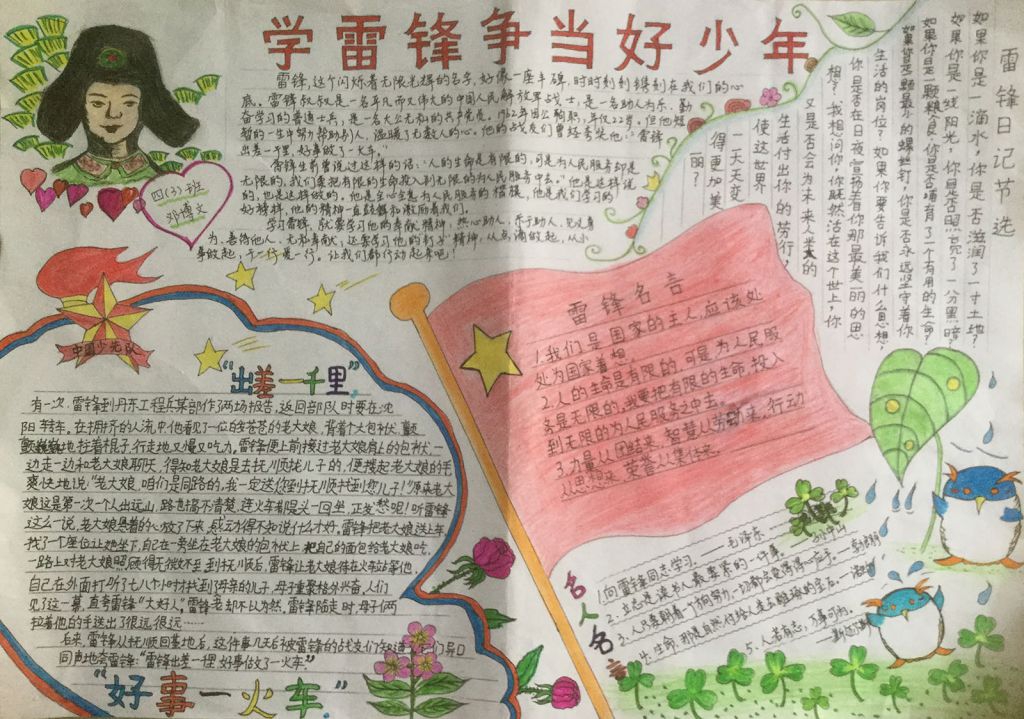 学雷锋争当好少年
雷锋,这个闪烁着无限光辉的名字,好像一座丰碑,时时刻刻镌刻在我们的心
底。雷锋叔叔是一名平凡而又伟大的中国人民解放军战士,是一名助人为乐、勤
奋学习的普通士兵,是一名大公无私的共产党员。1962年因公殉职,年仅22岁。但他短
暂的一生中努力帮助别人,温暖了无数人的心。他的战友们曾经夸奖他:“雷锋
出差一千里,好事做了一火车。”
雷锋生前曾说过这样的话:“人的生命是有限的,可是为人民服务却是
无限的,我们要把有限的生命投入到无限的为人民服务中去。”他是这样说
的,也是这样做的。他是全心全意为人民服务的楷模,他是我们学习的
好榜样,他的精神一直鼓舞和激励着我们。
学习雷锋,就要学习他的奉献精神,热心助人,乐于助人,见义勇
为,善待他人,无私奉献,还要学习他的钉子精神,从点滴做起,从小
事做起,干一行爱一行。让我们都行动起来吧!
四(3)班
邓博文
中国少先队
雷锋日记节选
如果你是一滴水,你是否滋润了一寸土地?
如果你是一线阳光,你是否照亮了一分黑暗?
如果你是一颗粮食,你是否哺育了一个有用的生命?
如果你是一颗最小的螺丝钉,你是否永远坚守着你
生活的岗位?如果你要告诉我们什么思想,
你是否在日夜宣扬着你那最美丽的思
想?我想问你,你既然活在这个世上,你
又是否会为未来人类的
生活付出你的劳行,
使这世界
一天天变
得更加美
丽?
雷锋名言
1.我们是国家的主人,应该处
处为国家着想。
2.人的生命是有限的,可是,为人民服
务是无限的,我要把有限的生命,投入
到无限的为人民服务之中去。
3.力量从团结来,智慧从劳动来,行动
从思想来,荣誉从集体来。
“出差一千里”
有一次,雷锋到丹东工程兵某部作了两场报告,返回部队时要在沈
阳转车。在拥挤的人流中,他看见了一位白发苍苍的老大娘,背着个大包袱,颤
颤巍巍地,拄着棍子,行走地又慢又吃力,雷锋便上前接过老大娘肩上的包袱,一
边走一边和老大娘聊天,得知老大娘是去抚顺找儿子的,便搀起老大娘的手
爽快地说:“老大娘,咱们是同路的,我一定送您到抚顺找到您儿子!”原来老大
娘这是第一次一个人出远山,路也搞不清楚,连火车都是头一回坐,正发愁呢!听雷锋
这么一说,老大娘悬着的心放了下来,感动得不知说什么才好,雷锋把老大娘送上车,
找了个座位让她坐下,自己在一旁坐在老大娘的包袱上,把自己的面包给老大娘吃,
一路上对老大娘照顾得无微不至。到抚顺后,雷锋让老大娘待在火车站等他,
自己在外面打听了七八个小时,找到了母亲的儿子,母子重聚格外兴奋,人们
见了这一幕,直夸雷锋“太好人”,雷锋老却不以为然,雷锋陪走时,母子俩
拉着他的手送出了很远,很远……
后来,雷锋从抚顺回基地后,这件事几天后被雷锋的战友们知道了,他们异口
同声地夸雷锋:“雷锋出差一千里,好事做了一火车。”
“好事一火车”
名人名言
1.向雷锋同志学习。——毛泽东
2.立志是读书人最要紧的一件事。
3.人只要朝着一个方向努力,一切都会变得得心应手。
4.生命,那是自然付给人去雕琢的宝石。
5.人若有志,万事可为。